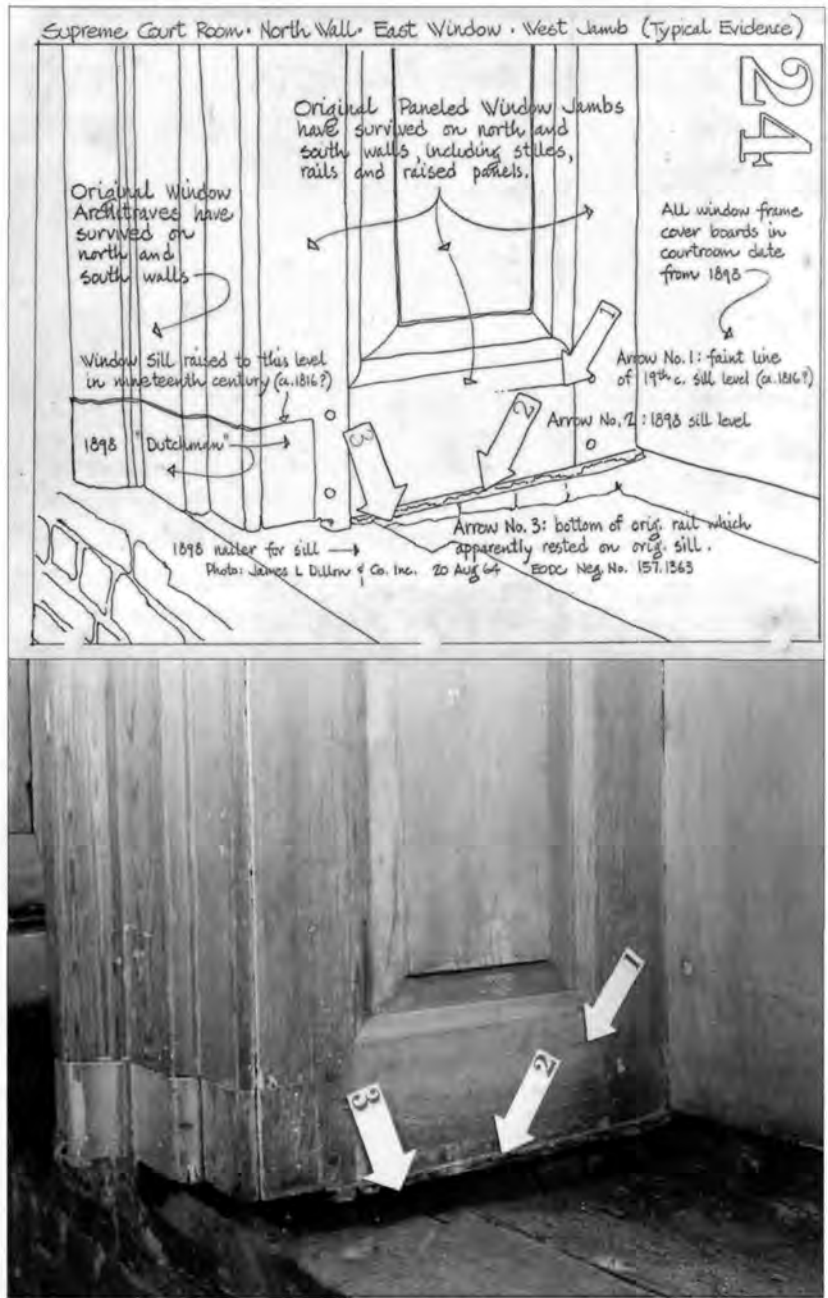 Supreme Court Room · North Wall · East Window · West Jamb (Typical Evidence)
24
Original Paneled Window Jambs
have survived on north and
south walls, including stiles,
rails and raised panels.
Original Window
Architraves have
survived on
north and
south walls
All window frame
cover boards in
courtroom date
from 1898
Window Sill raised to this level
in nineteenth century (ca. 1816?)
1
Arrow No. 1: faint line
of 19th c. sill level (ca. 1816?)
2
Arrow No. 2: 1898 sill level
3
1898 "Dutchman"
Arrow No. 3: bottom of orig. rail which
apparently rested on orig. sill.
1898 nailer for sill
Photo: James L Dillon & Co. Inc. 20 Aug 64 EODC Neg. No. 157.1363
1
2
3